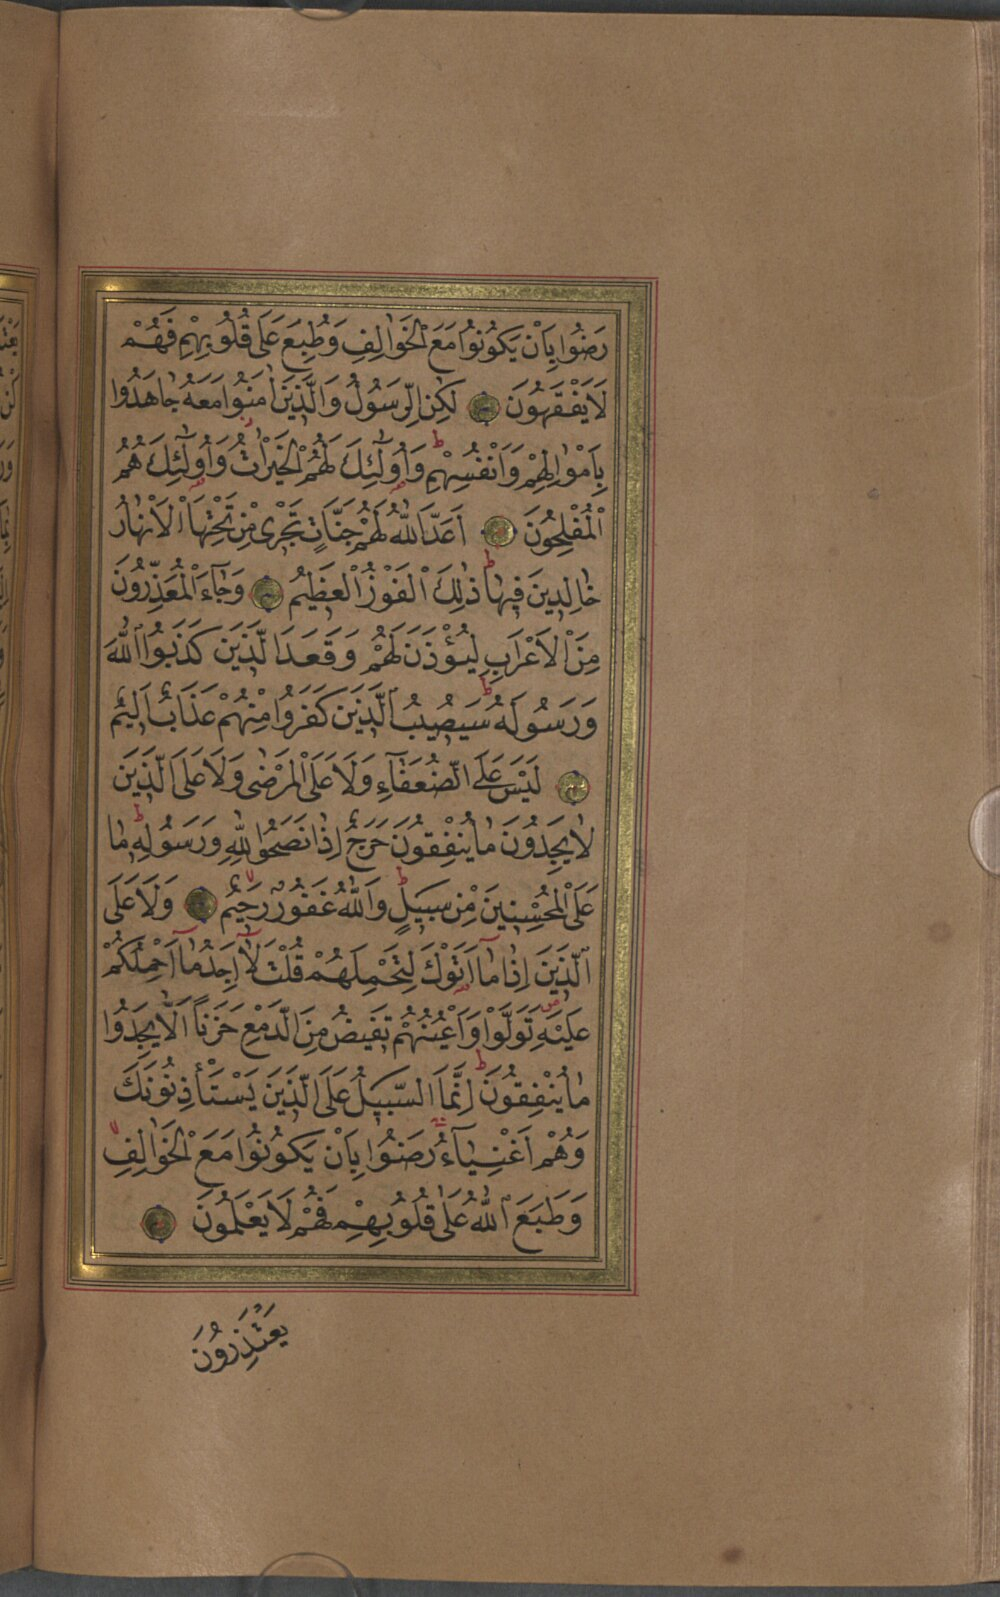 رَضُوا بِاَنْ يَكُونُوا مَعَ الْخَوٰالِفِ وَطُبِعَ عَلٰى قُلُوبِهِمْ فَهُمْ
لَا يَفْقَهُونَ لٰكِنِ الرَّسُولُ وَالَّذِينَ اٰمَنُوا مَعَهُ جٰاهَدُوا
بِاَمْوٰالِهِمْ وَاَنْفُسِهِمْ وَاُولٰٓئِكَ لَهُمُ الْخَيْرٰاتُ وَاُولٰٓئِكَ هُمُ
الْمُفْلِحُونَ اَعَدَّ اللّٰهُ لَهُمْ جَنّٰاتٍ تَجْرِى مِنْ تَحْتِهَا الْاَنْهٰارُ
خٰالِدِينَ فِيهٰا ذٰلِكَ الْفَوْزُ الْعَظِيمُ وَجٰٓاءَ الْمُعَذِّرُونَ
مِنَ الْاَعْرَابِ لِيُؤْذَنَ لَهُمْ وَقَعَدَ الَّذِينَ كَذَبُوا اللّٰهَ
وَرَسُولَهُ سَيُصِيبُ الَّذِينَ كَفَرُوا مِنْهُمْ عَذَابٌ اَلِيمٌ
لَيْسَ عَلَى الضُّعَفَآءِ وَلَا عَلَى الْمَرْضٰى وَلَا عَلَى الَّذِينَ
لٰا يَجِدُونَ مٰا يُنْفِقُونَ حَرَجٌ اِذٰا نَصَحُوا لِلّٰهِ وَرَسُولِهِ مٰا
عَلَى الْمُحْسِنِينَ مِنْ سَبِيلٍ وَاللّٰهُ غَفُورٌ رَحِيمٌ وَلَا عَلَى
الَّذِينَ اِذٰا مٰٓا اَتَوْكَ لِتَحْمِلَهُمْ قُلْتَ لٰٓا اَجِدُ مٰٓا اَحْمِلُكُمْ
عَلَيْهِ تَوَلَّوْا وَاَعْيُنُهُمْ تَفِيضُ مِنَ الدَّمْعِ حَزَنًا اَلَّا يَجِدُوا
مٰا يُنْفِقُونَ اِنَّمَا السَّبِيلُ عَلَى الَّذِينَ يَسْتَأْذِنُونَكَ
وَهُمْ اَغْنِيٰٓاءُ رَضُوا بِاَنْ يَكُونُوا مَعَ الْخَوٰالِفِ
وَطَبَعَ اللّٰهُ عَلٰى قُلُوبِهِمْ فَهُمْ لَا يَعْلَمُونَ
يَعْتَذِرُونَ